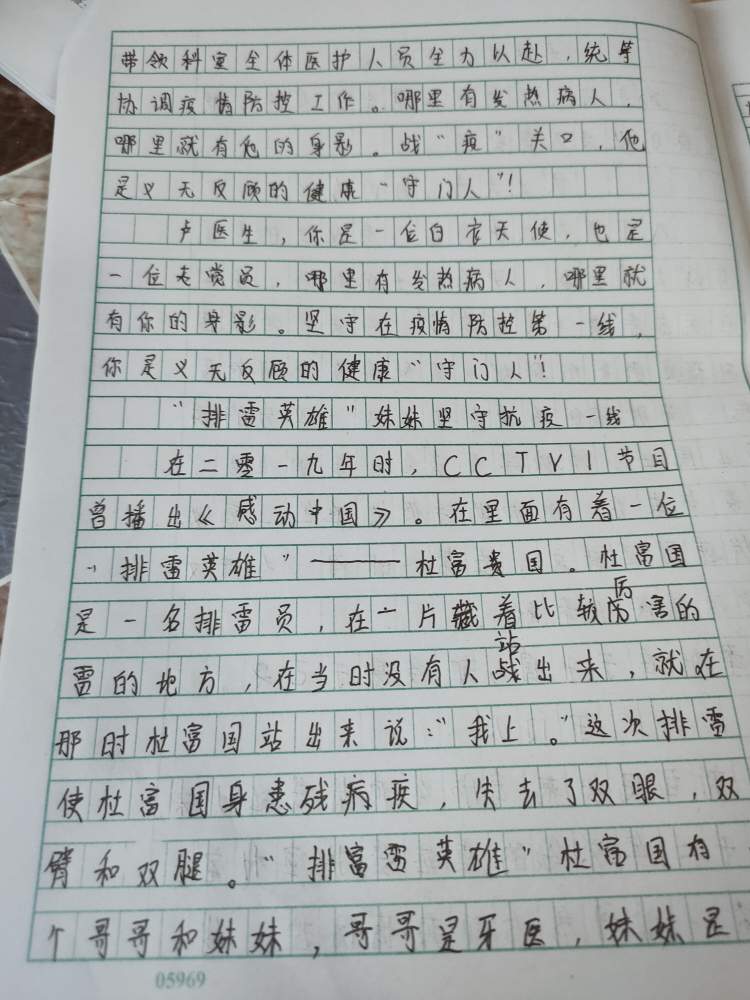 带领科室全体医护人员全力以赴，统筹
协调疫情防控工作。哪里有发热病人，
哪里就有他的身影。战“疫”关口，他
是义无反顾的健康“守门人”！
卢医生，你是一位白衣天使，也是
一位共党员，哪里有发热病人，哪里就
有你的身影。坚守在疫情防控第一线，
你是义无反顾的健康“守门人”！
“排雷英雄”妹妹坚守抗疫一线
在二零一九年时，CCTV1节目
曾播出《感动中国》。在里面有着一位
“排雷英雄”——杜富贵国。杜富国
是一名排雷员，在一片藏着比较厉害的
雷的地方，在当时没有人站出来，就在
那时杜富国站出来说：“我上。”这次排雷
使杜富国身患残病疾，失去了双眼，双
臂和双腿。“排富雷英雄”杜富国有
个哥哥和妹妹，哥哥是牙医，妹妹是
05969